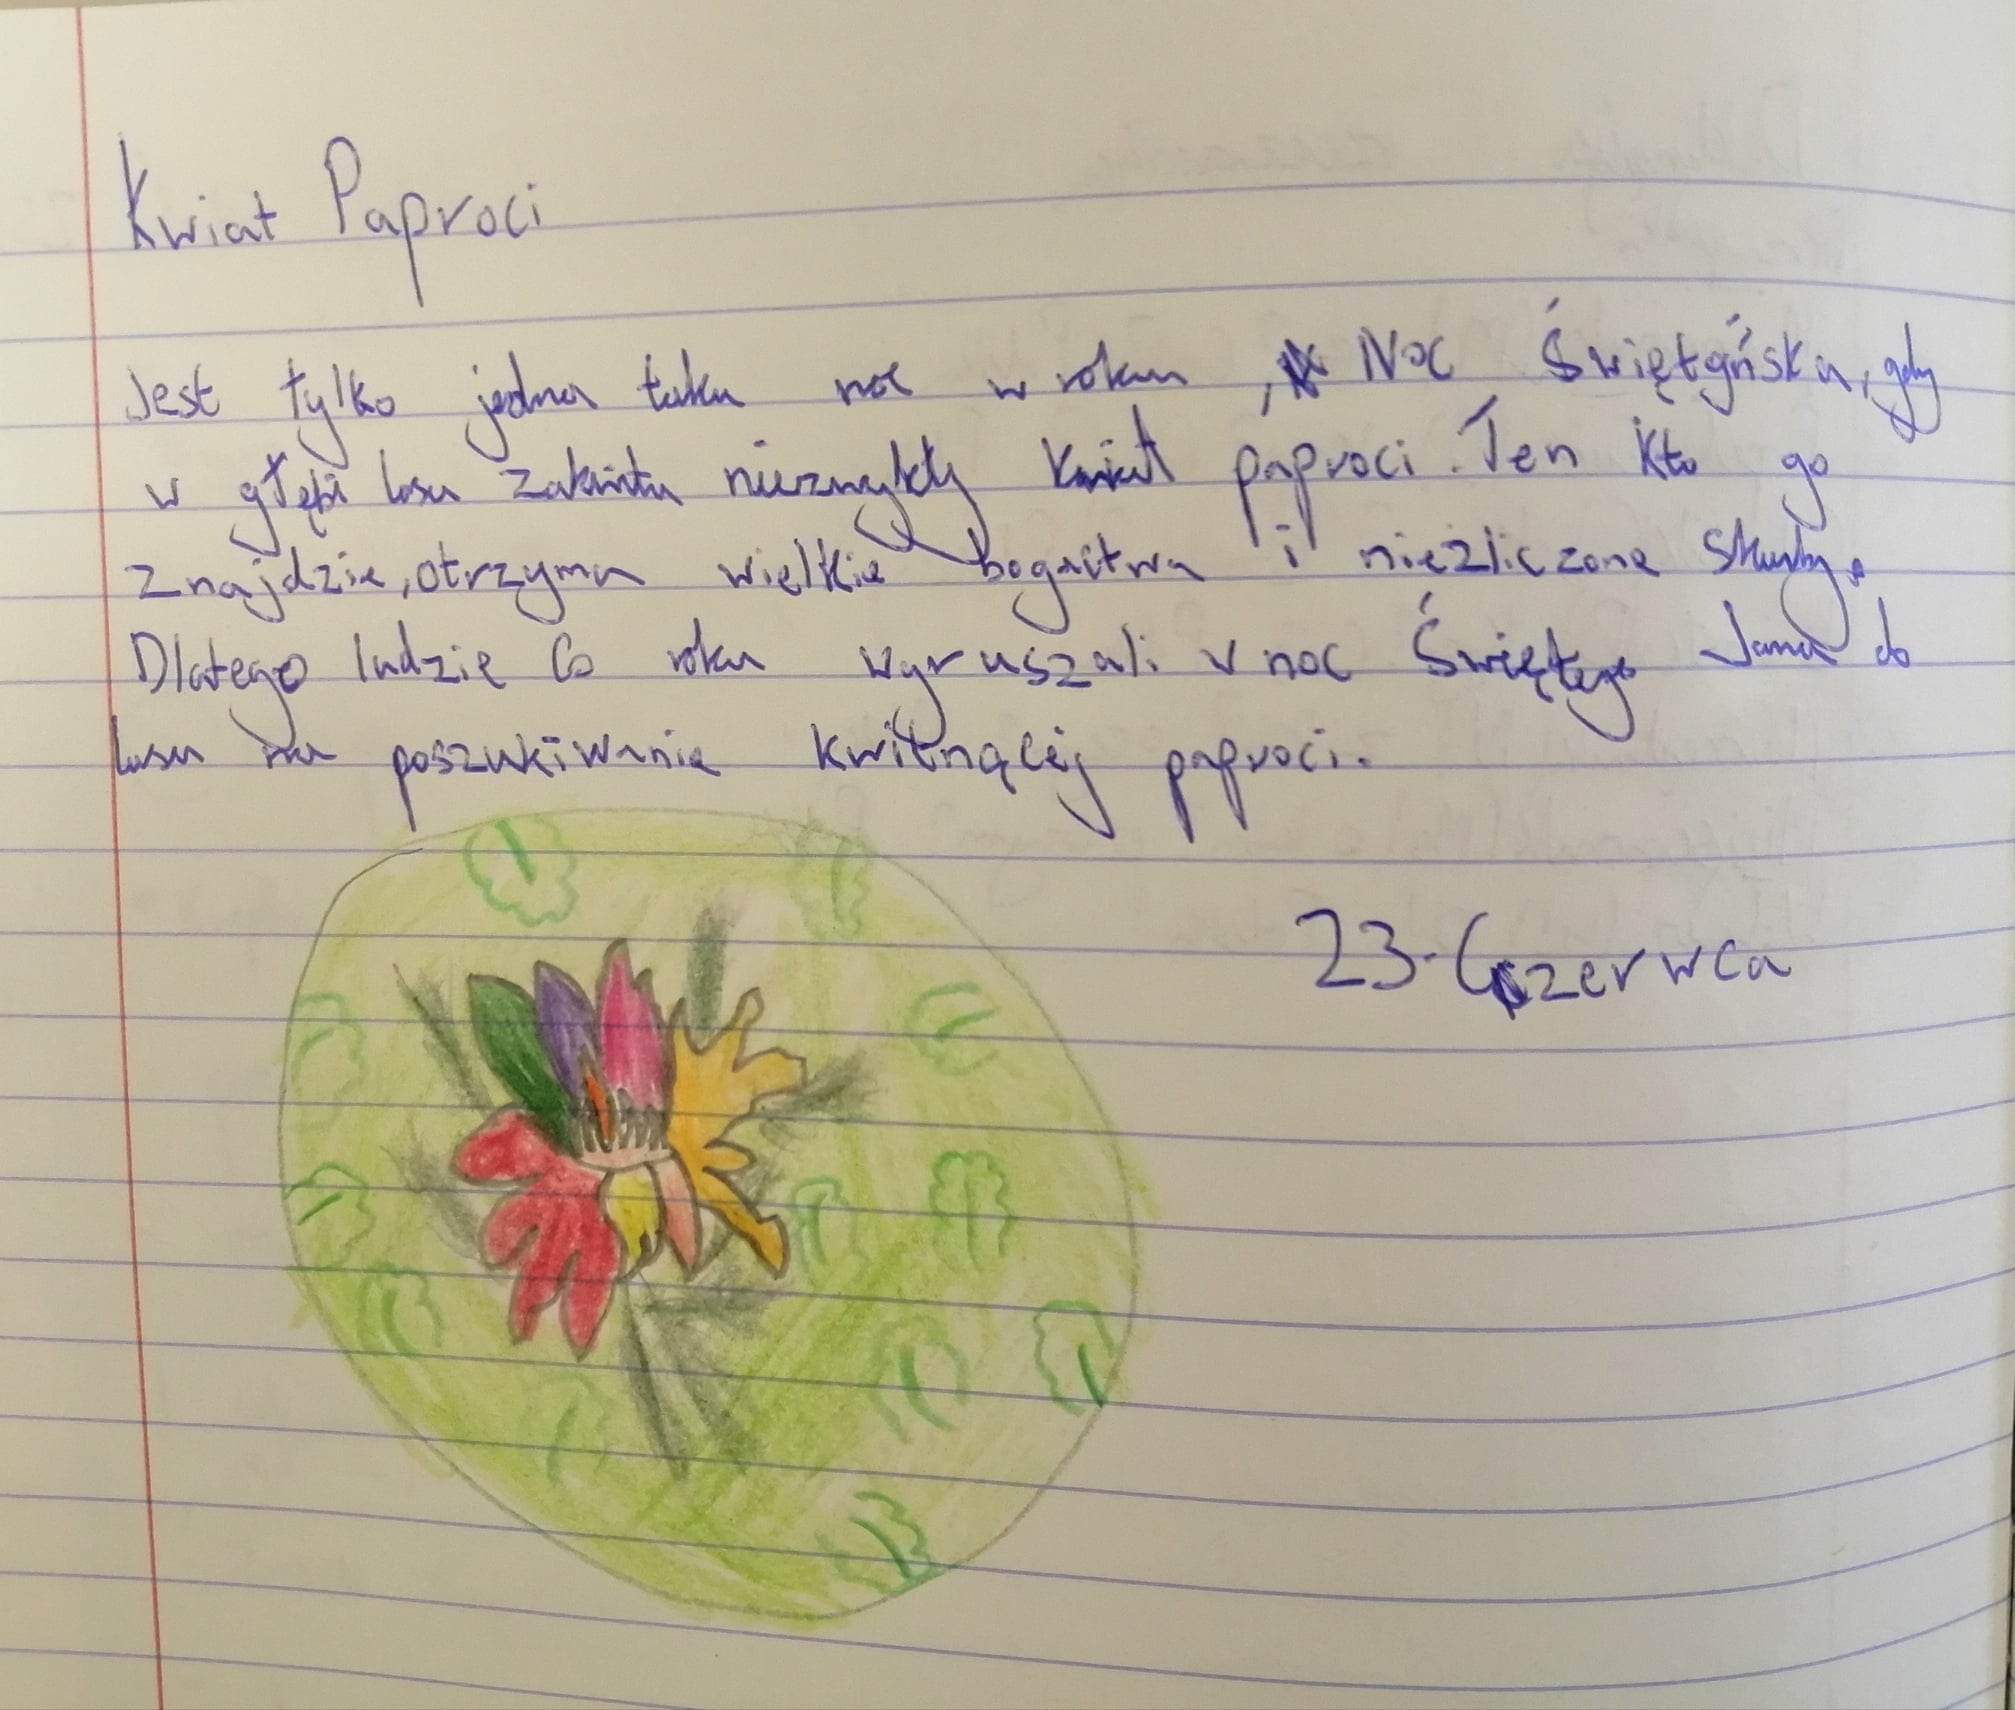 Kwiat Paproci
Jest tylko jedna taka noc w roku, Noc Świętyńska, gdy
w głębi lasu zakwita niezwykły kwiat paproci. Ten kto go
znajdzie, otrzyma wielkie bogactwa i niezliczone skarby.
Dlatego ludzie co roku wyruszali w noc Świętego Jana do
lasu na poszukiwanie kwitnącej paproci.
23. Czerwca